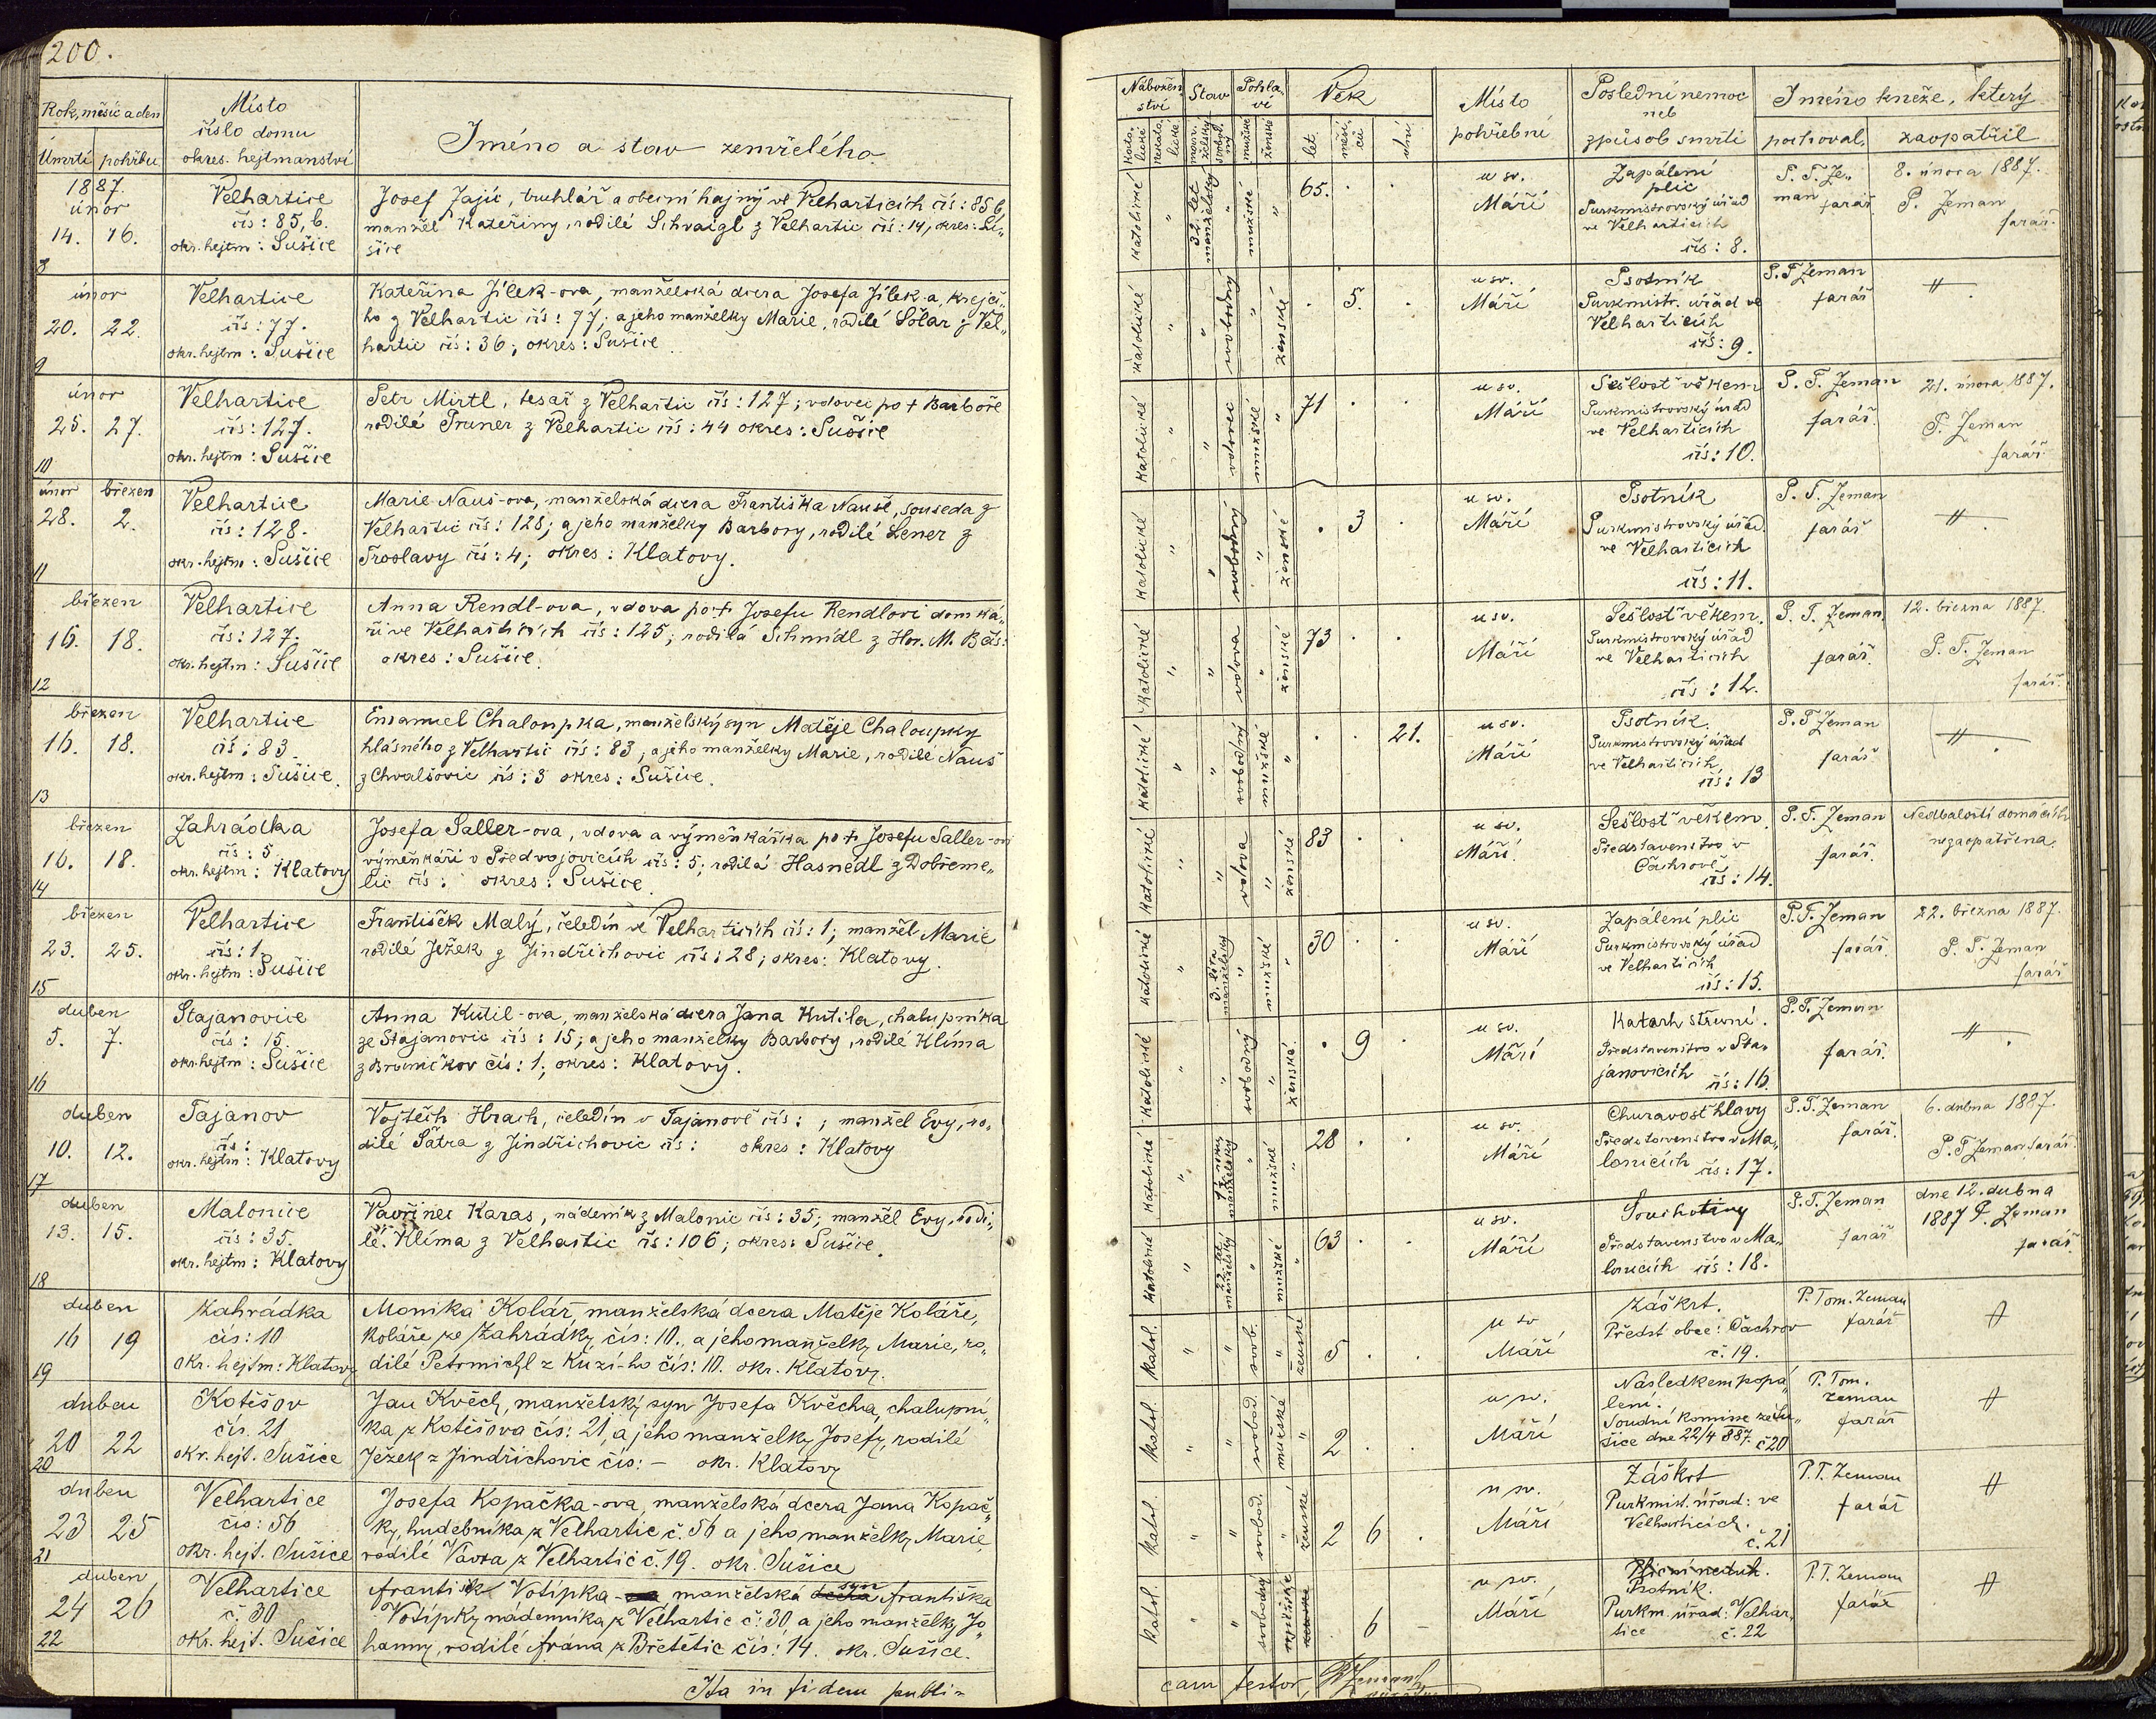 200.
Rok, měsíc a den
Úmrtí pohřbu
Místo
číslo domu
okres. hejtmanství
Jméno a stav zemřelého.
1887.
únor
14. 16.
8
Velhartice
čís: 85, b.
okr. hejtm: Sušice
Josef Jajíc, truhlář a obecní hajný ve Velharticích čís: 85 b,
manžel Kateřiny, rodilé Schvaigl z Velhartic čís: 14, okres: Su„
šice
únor
20. 22.
9
Velhartice
čís: 77.
okr. hejtm: Sušice
Kateřina Jílek-ova, manželská dcera Josefa Jílek-a, krejčí„
ho z Velhartic čís: 77; a jeho manželky Marie, rodilé Solar z Vel„
hartic čís: 36; okres: Sušice
únor
25. 27.
10
Velhartice
čís: 127.
okr. hejtm: Sušice
Petr Mirtl, tesař z Velhartic čís: 127; vdovec po † Barboře
rodilé Pruner z Velhartic čís: 44 okres: Sušice
únor březen
28. 2.
11
Velhartice
čís: 128.
okr. hejtm: Sušice
Marie Nauš-ova, manželská dcera Františka Nauše, souseda z
Velhartic čís: 128; a jeho manželky Barbory, rodilé Lener z
Froslavy čís: 4; okres: Klatovy.
březen
16. 18.
12
Velhartice
čís: 127.
okr. hejtm: Sušice
Anna Rendl-ova, vdova po † Josefu Rendlovi domká„
ři ve Velharticích čís: 125; rodilá Schmidl z Hor. M. Bás:
okres: Sušice.
březen
16. 18.
13
Velhartice
čís: 83
okr. hejtm: Sušice.
Emanuel Chaloupka, manželský syn Matěje Chaloupky
hlásného z Velhartic čís: 83, a jeho manželky Marie, rodilé Nauš
z Chvalšovic čís: 3 okres: Sušice.
březen
16. 18.
14
Zahrádka
čís: 5
okr. hejtm: Klatovy
Josefa Saller-ova, vdova a výměnkářka po † Josefu Saller-ovi
výměnkáři v Předvojovicích čís: 5; rodilá Hasnedl z Dobřeme„
lic čís: okres: Sušice.
březen
23. 25.
15
Velhartice
čís: 1.
okr. hejtm: Sušice
František Malý, čeledín ve Velharticích čís: 1; manžel Marie
rodilé Ježek z Jindřichovic čís: 28; okres: Klatovy.
duben
5. 7.
16
Stajanovice
čís: 15.
okr. hejtm: Sušice
Anna Kutil-ova, manželská dcera Jana Kutila, chalupníka
ze Stajanovic čís: 15; a jeho manželky Barbory, rodilé Klíma
z Brumičkov čís: 1; okres: Klatovy.
duben
10. 12.
17
Tajanov
čís:
okr. hejtm: Klatovy
Vojtěch Hrach, čeledín v Tajanově čís: ; manžel Evy, ro„
dilé Šatra z Jindřichovic čís: okres: Klatovy
duben
13. 15.
18
Malonice
čís: 35.
okr. hejtm: Klatovy
Vavřinec Karas, nádeník z Malonic čís: 35; manžel Evy, rodi„
lé. Klíma z Velhartic čís: 106; okres: Sušice.
duben
16 19
19
Zahrádka
čís: 10
okr. hejtm: Klatovy
Monika Kolár, manželská dcera Matěje Koláře,
koláře ze Zahrádky, čís: 10., a jeho manželky Marie, ro„
dilé Petrmichl z Kuzí-ho čís: 10. okr. Klatovy.
duben
20 22
20
Kotěšov
čís. 21
okr. hejt. Sušice
Jan Květh, manželský syn Josefa Květha, chalupní„
ka z Kotěšova čís: 21, a jeho manželky Josefy, rodilé
Ježek z Jindřichovic čís: – okr. Klatovy
duben
23 25
21
Velhartice
čís: 56
okr. hejt. Sušice
Josefa Kopačka-ova, manželská dcera Jana Kopač„
ky, hudebníka z Velhartic č. 56 a jeho manželky Marie,
rodilé Vavra z Velhartic č. 19. okr. Sušice
duben
24 26
22
Velhartice
č. 30
okr. hejt. Sušice
František Votípka- manželská dcera syn Františka
Votípky nádenníka z Velhartic č. 30 a jeho manželky Jo„
hanny, rodilé Frána z Břetětic čís: 14. okr. Sušice.
Ita in fidem publi=
Nábožen„
ství
Stav
Pohla„
ví
Věk
Místo
pohřební
Poslední nemoc
neb
způsob smrti
Jméno kněze, který
pochoval, zaopatřil
kato„
lické
nekato„
lické
man„
želský
svobod„
ný
mužské
ženské
let
měsí„
ců
dní
katolické " 32 let manželský " mužské " 65. . .
u sv.
Máří
Zapálení
plic
Purkmistrovský úřad
ve Velharticích
čís: 8.
P. T. Ze„
man farář
8. února 1887.
P. Zeman
farář.
katolické " " svobodný " ženské . 5. .
u sv.
Máří
Psotník
Purkmistr. úřad ve
Velharticích
čís: 9.
P. T Zeman
farář
katolické " " vdovec mužské " 71 . .
u sv.
Máří
Sešlosť věkem
Purkmistrovský úřad
ve Velharticích
čís: 10.
P. T. Zeman
farář.
21. února 1887.
P. Zeman
farář
katolické " " svobodný " ženské . 3 .
u sv.
Máří
Psotník
Purkmistrovský úřad.
ve Velharticích
čís: 11.
P. T. Zeman
farář
katolické " " vdova " ženské 73 . .
u sv.
Máří
Sešlosť věkem.
Purkmistrovský úřad
ve Velharticích
čís: 12.
P. T. Zeman
farář.
12. března 1887.
P. T. Zeman
farář.
katolické " " svobodný mužské " . . 21.
u sv.
Máří
Psotník.
Purkmistrovský úřad
ve Velharticích,
čís: 13
P. T Zeman
farář
katolické " " vdova " ženské 83 . .
u sv.
Máří.
Sešlosť věkem.
Představenstvo v
Čachrově
čís: 14.
P. T. Zeman
farář.
Nedbalostí domácích
nezaopatřena.
katolické " 3. léta manželský " mužské " 30 . .
u sv.
Máří
Zapálení plic
Purkmistrovský úřad
ve Velharticích
čís: 15.
P. T. Zeman
farář.
22. března 1887.
P. T. Zeman
farář
katolické " svobodný " ženské. . 9 .
u sv.
Máří
Katarh střevní.
Představenstvo v Sta„
janovicích čís: 16.
P. T. Zeman
farář.
katolické " manželský " mužské " 28 . .
u sv.
Máří
Churavosť hlavy
Představenstvo v Ma„
lonicích čís: 17.
P. T. Zeman
farář.
6. dubna 1887.
P. T Zeman farář.
katolické " 22 let manželský " mužské " 63 . .
u sv.
Máří
Souchotiny
Představenstvo v Ma„
lonicích čís: 18.
P. T. Zeman
farář
dne 12. dubna
1887 P. Zeman
farář.
katol. " " svob. " ženské 5 . .
u sv
Máří
Záškrt.
Předst. obce: Čachrov
č. 19.
P. Tom. Zeman
farář
katol. " " svobod. mužské " 2 . .
u sv.
Máří
Následkem popá„
lení.
Soudní komise ze Su„
šice dne 22/4 887. č 20
P. Tom.
Zeman
farář
katol. " " svobod. " ženské 2 6 .
u sv.
Máří
Záškrt
Purkmist. úřad: ve
Velharticích.
č. 21
P. T. Zeman
farář
katol. " " svobodný mužské ženské . 6 –
u sv.
Máří
Psotník.
Purkm. úřad: Velhar„
tice č. 22
P. T. Zeman
farář
cam testor,